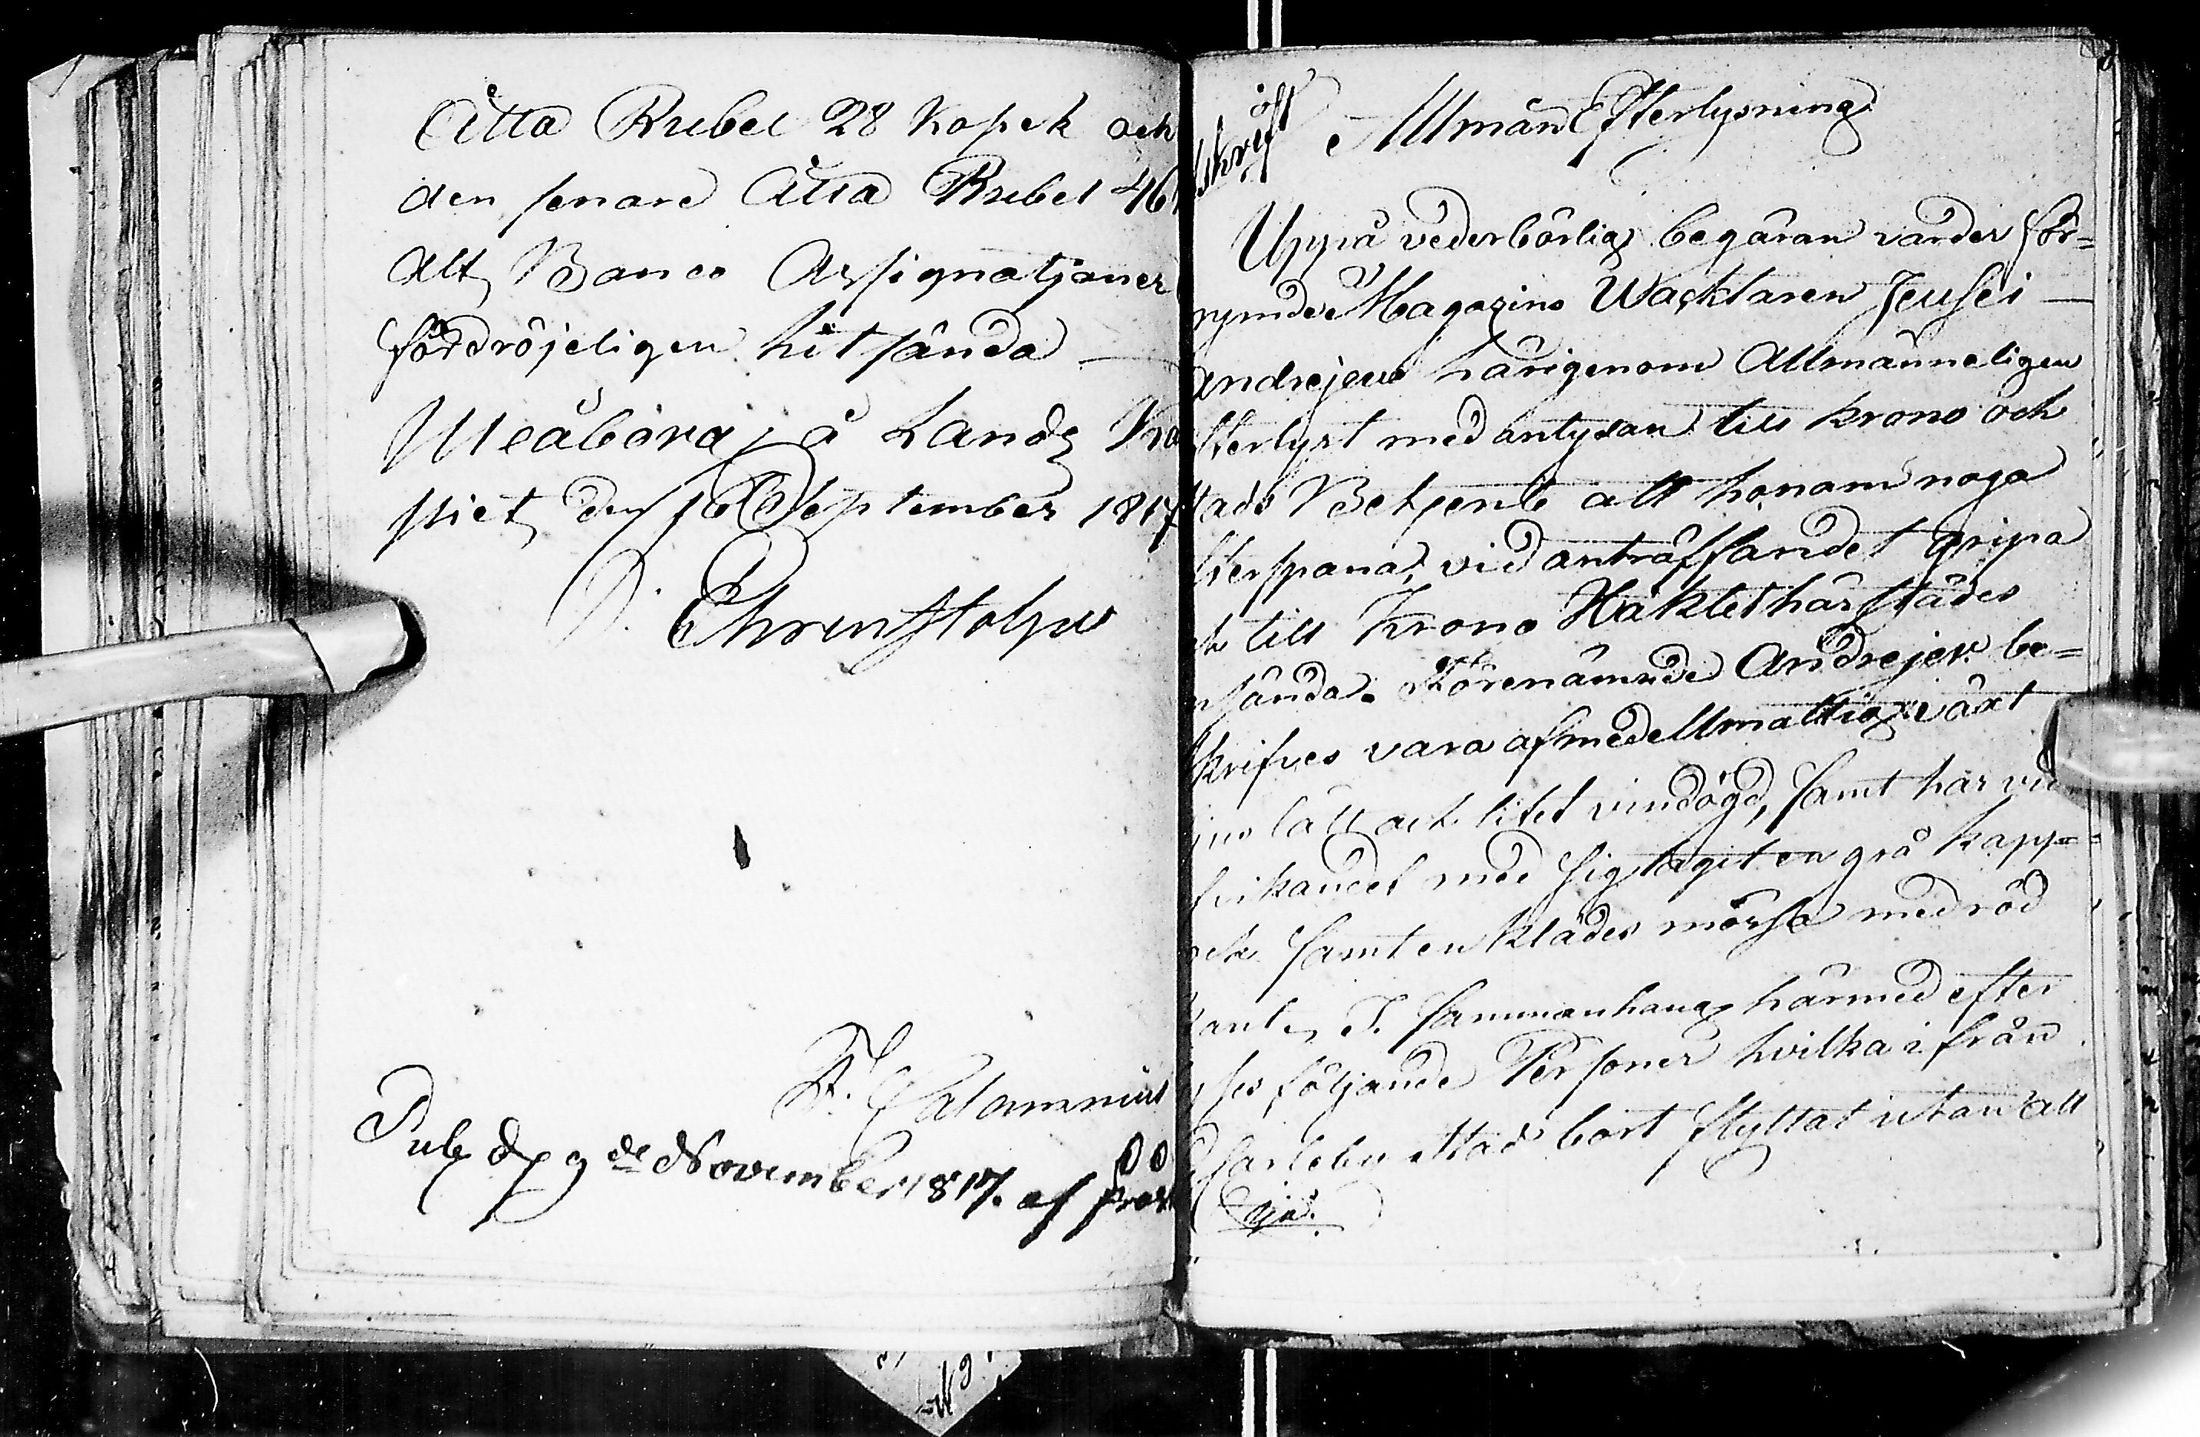 Åtta Rubel 28 Kopek och
den senare Åtta Rubel 46
Alt Banco Assignatjoner
fördröjeligen hitsända
Uleåborg å Lands Ka
sliet den 16 September 1817
Ehrenstolpe
F. Calamnius
Publ d 9de November 1817. af
Allmän Efterlysning
Uppå vederbörlig begäran varder för=
rymde Magazins Wacktaren Jeusei
Andrejew härigenom Allmänneligen
fterlyst med antydan till Krono och
tads Betjente att honom noga
fterspana, vid anträffandet gripa
h till Krono Häktet härstädes
nsända. Förenämnde Andrejew be=
krifves vara af medellmåttig växt
och litet vindögd, samt har vid
vikandet med sig tagit en grå kapp=
ock samt en klädes mössa med röd
kant. I sammanhang härmed efter
yses följande Personer hvilka ifrån
Stad bort flyttat utan att